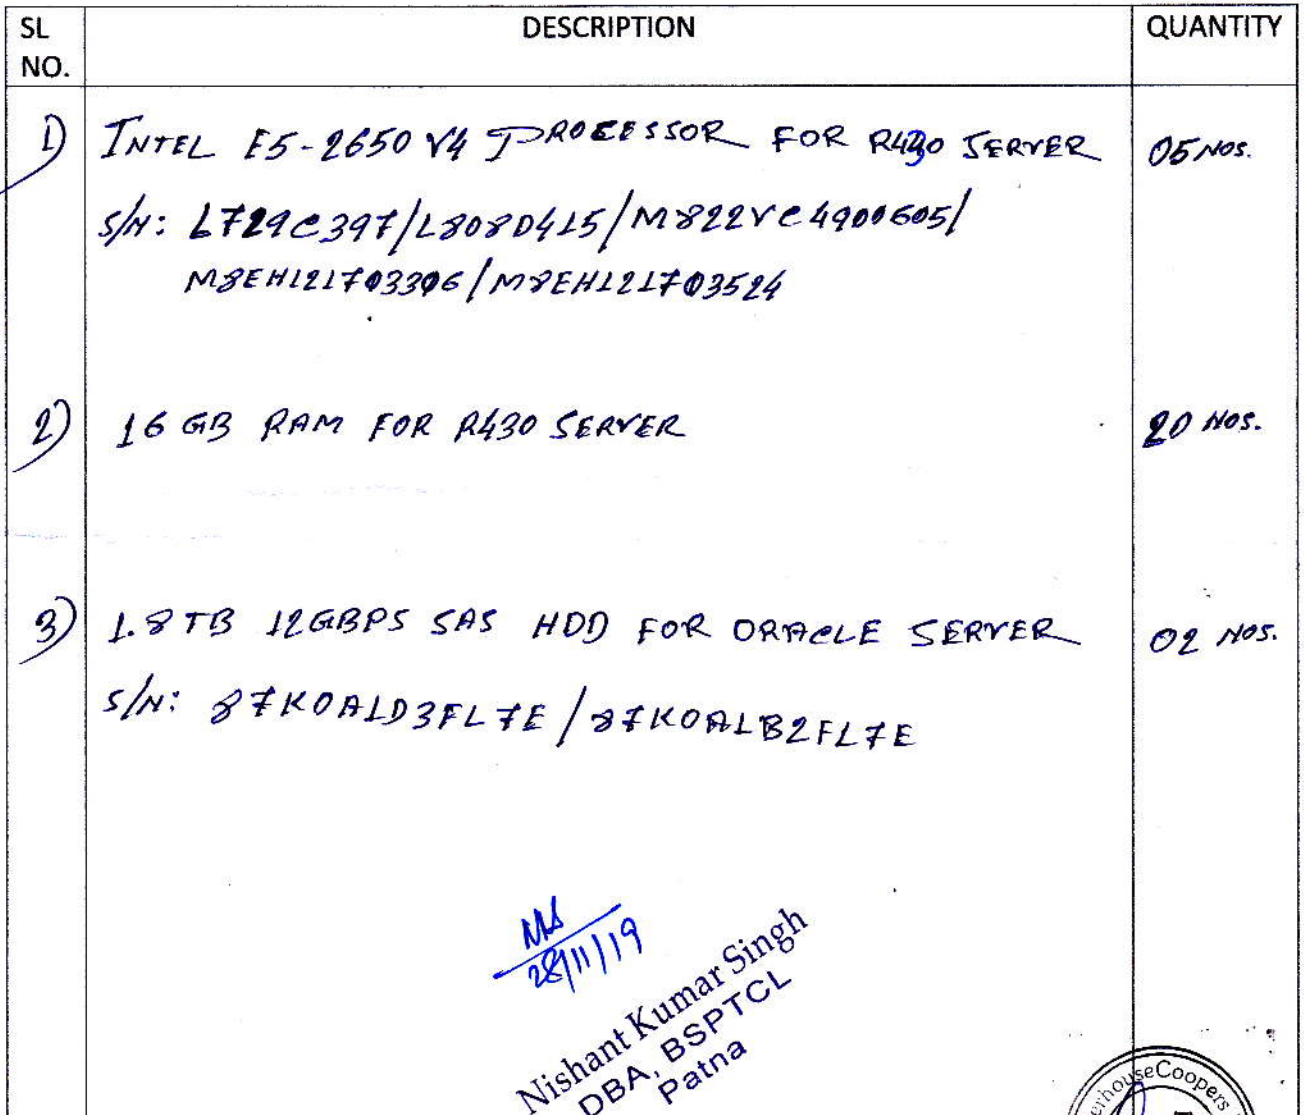 SL NO. DESCRIPTION QUANTITY
1) INTEL E5-2650 V4 PROCESSOR FOR R430 SERVER 05 NOS.
S/N: L729C397/L808D415/M822VC4900605/
M8EH121703306/M8EH121703524
2) 16 GB RAM FOR R430 SERVER 20 NOS.
3) 1.8TB 12GBPS SAS HDD FOR ORACLE SERVER 02 NOS.
S/N: 87K0A1D3FL7E/87K0A1B2FL7E
28/11/19
Nishant Kumar Singh
DBA, BSPTCL
Patna
erhouseCoopers